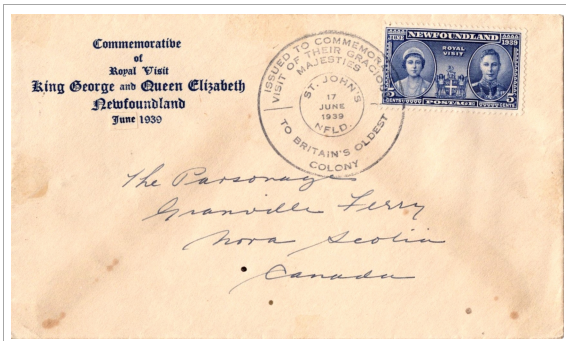 Commemorative
of
Royal Visit
King George and Queen Elizabeth
Newfoundland
June 1939
ISSUED TO COMMEMORATE
VISIT OF THEIR GRACIOUS
MAJESTIES
ST. JOHN'S
17
JUNE
1939
NFLD.
TO BRITAIN'S OLDEST
COLONY
JUNE NEWFOUNDLAND 1939
ROYAL
VISIT
5 5
CENTS POSTAGE CENTS
The Parsonage
Granville Ferry
Nova Scotia
Canada